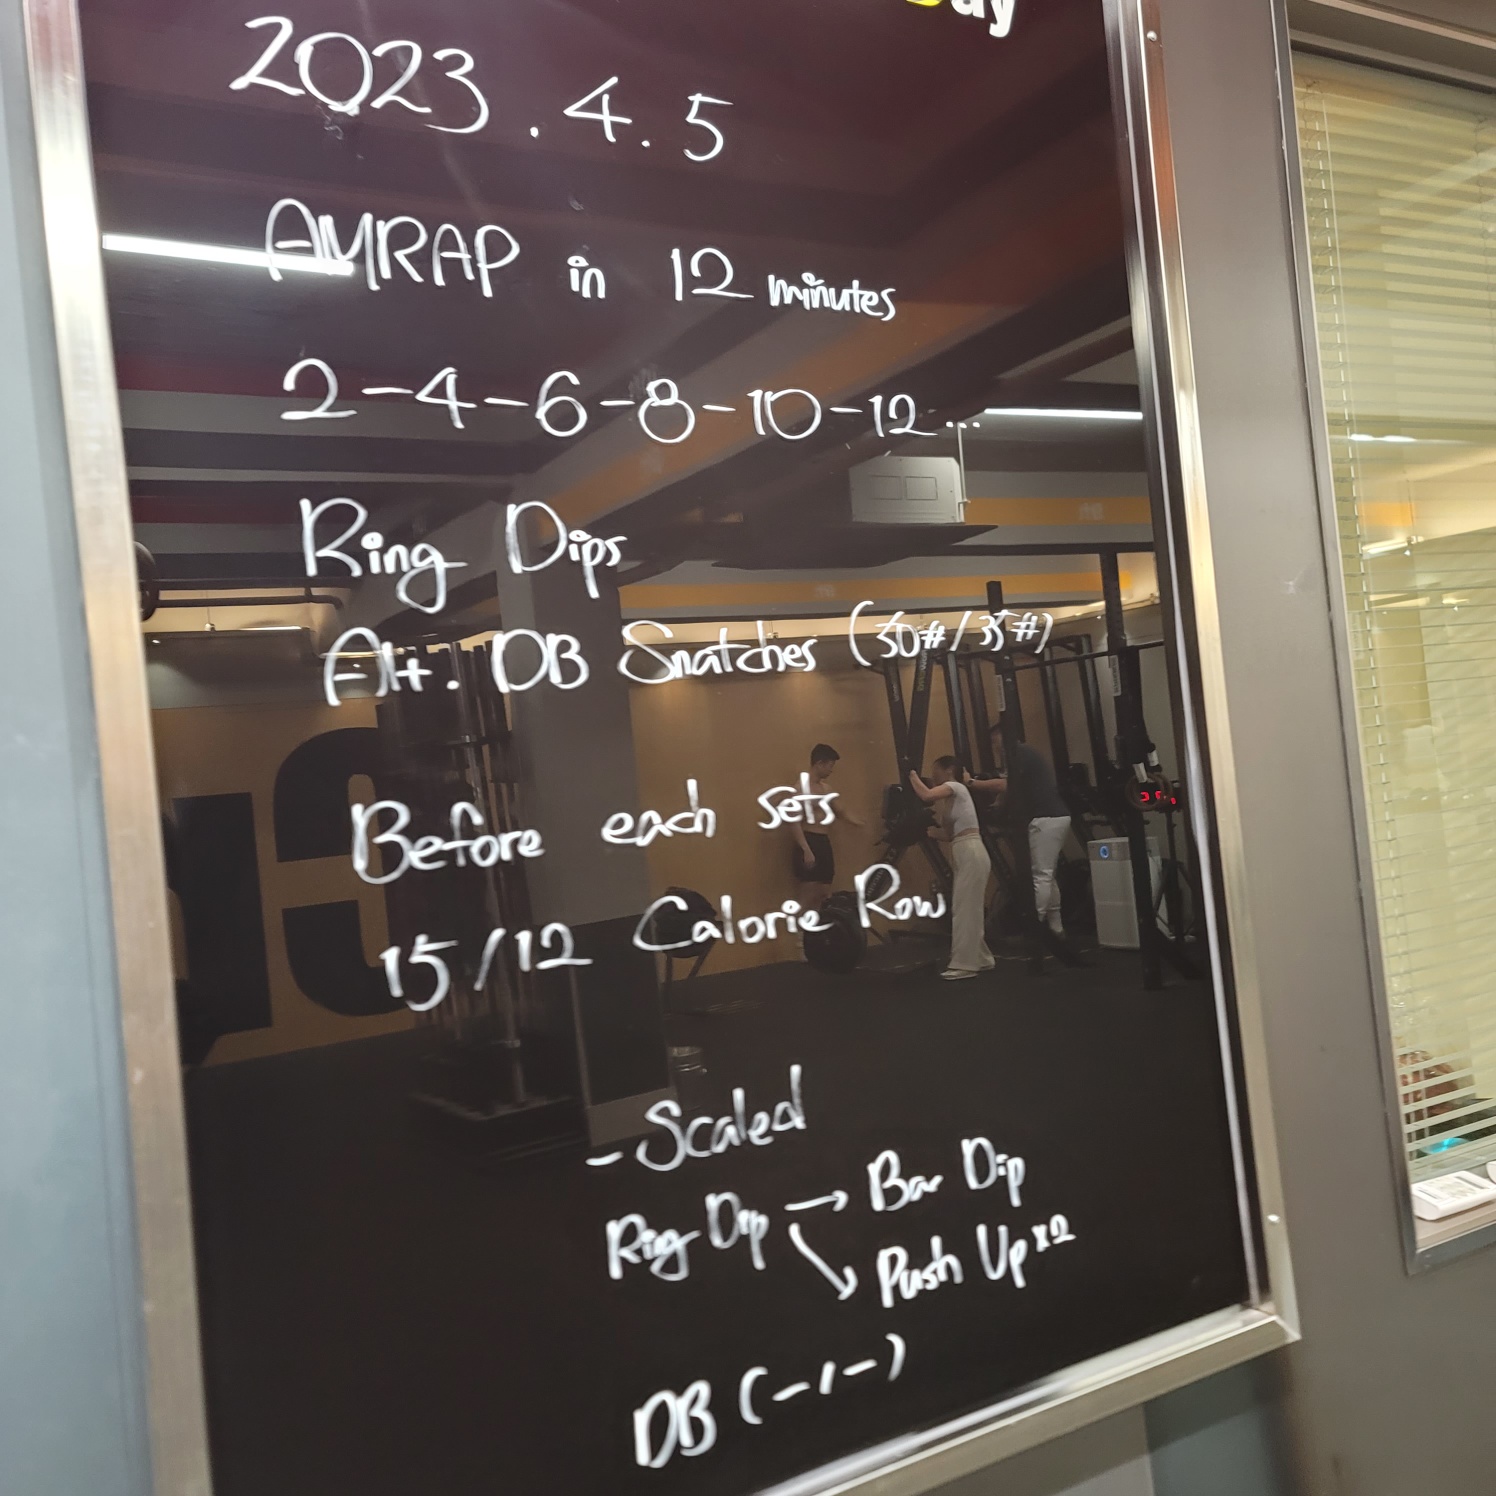 2023.4.5
AMRAP in 12 minutes
2-4-6-8-10-12...
Ring Dips
Alt. DB Snatches (50#/35#)
Before each sets
15/12 Calorie Row
- Scaled
Ring Dip → Bar Dip
↘ Push Up x2
DB (-/-)